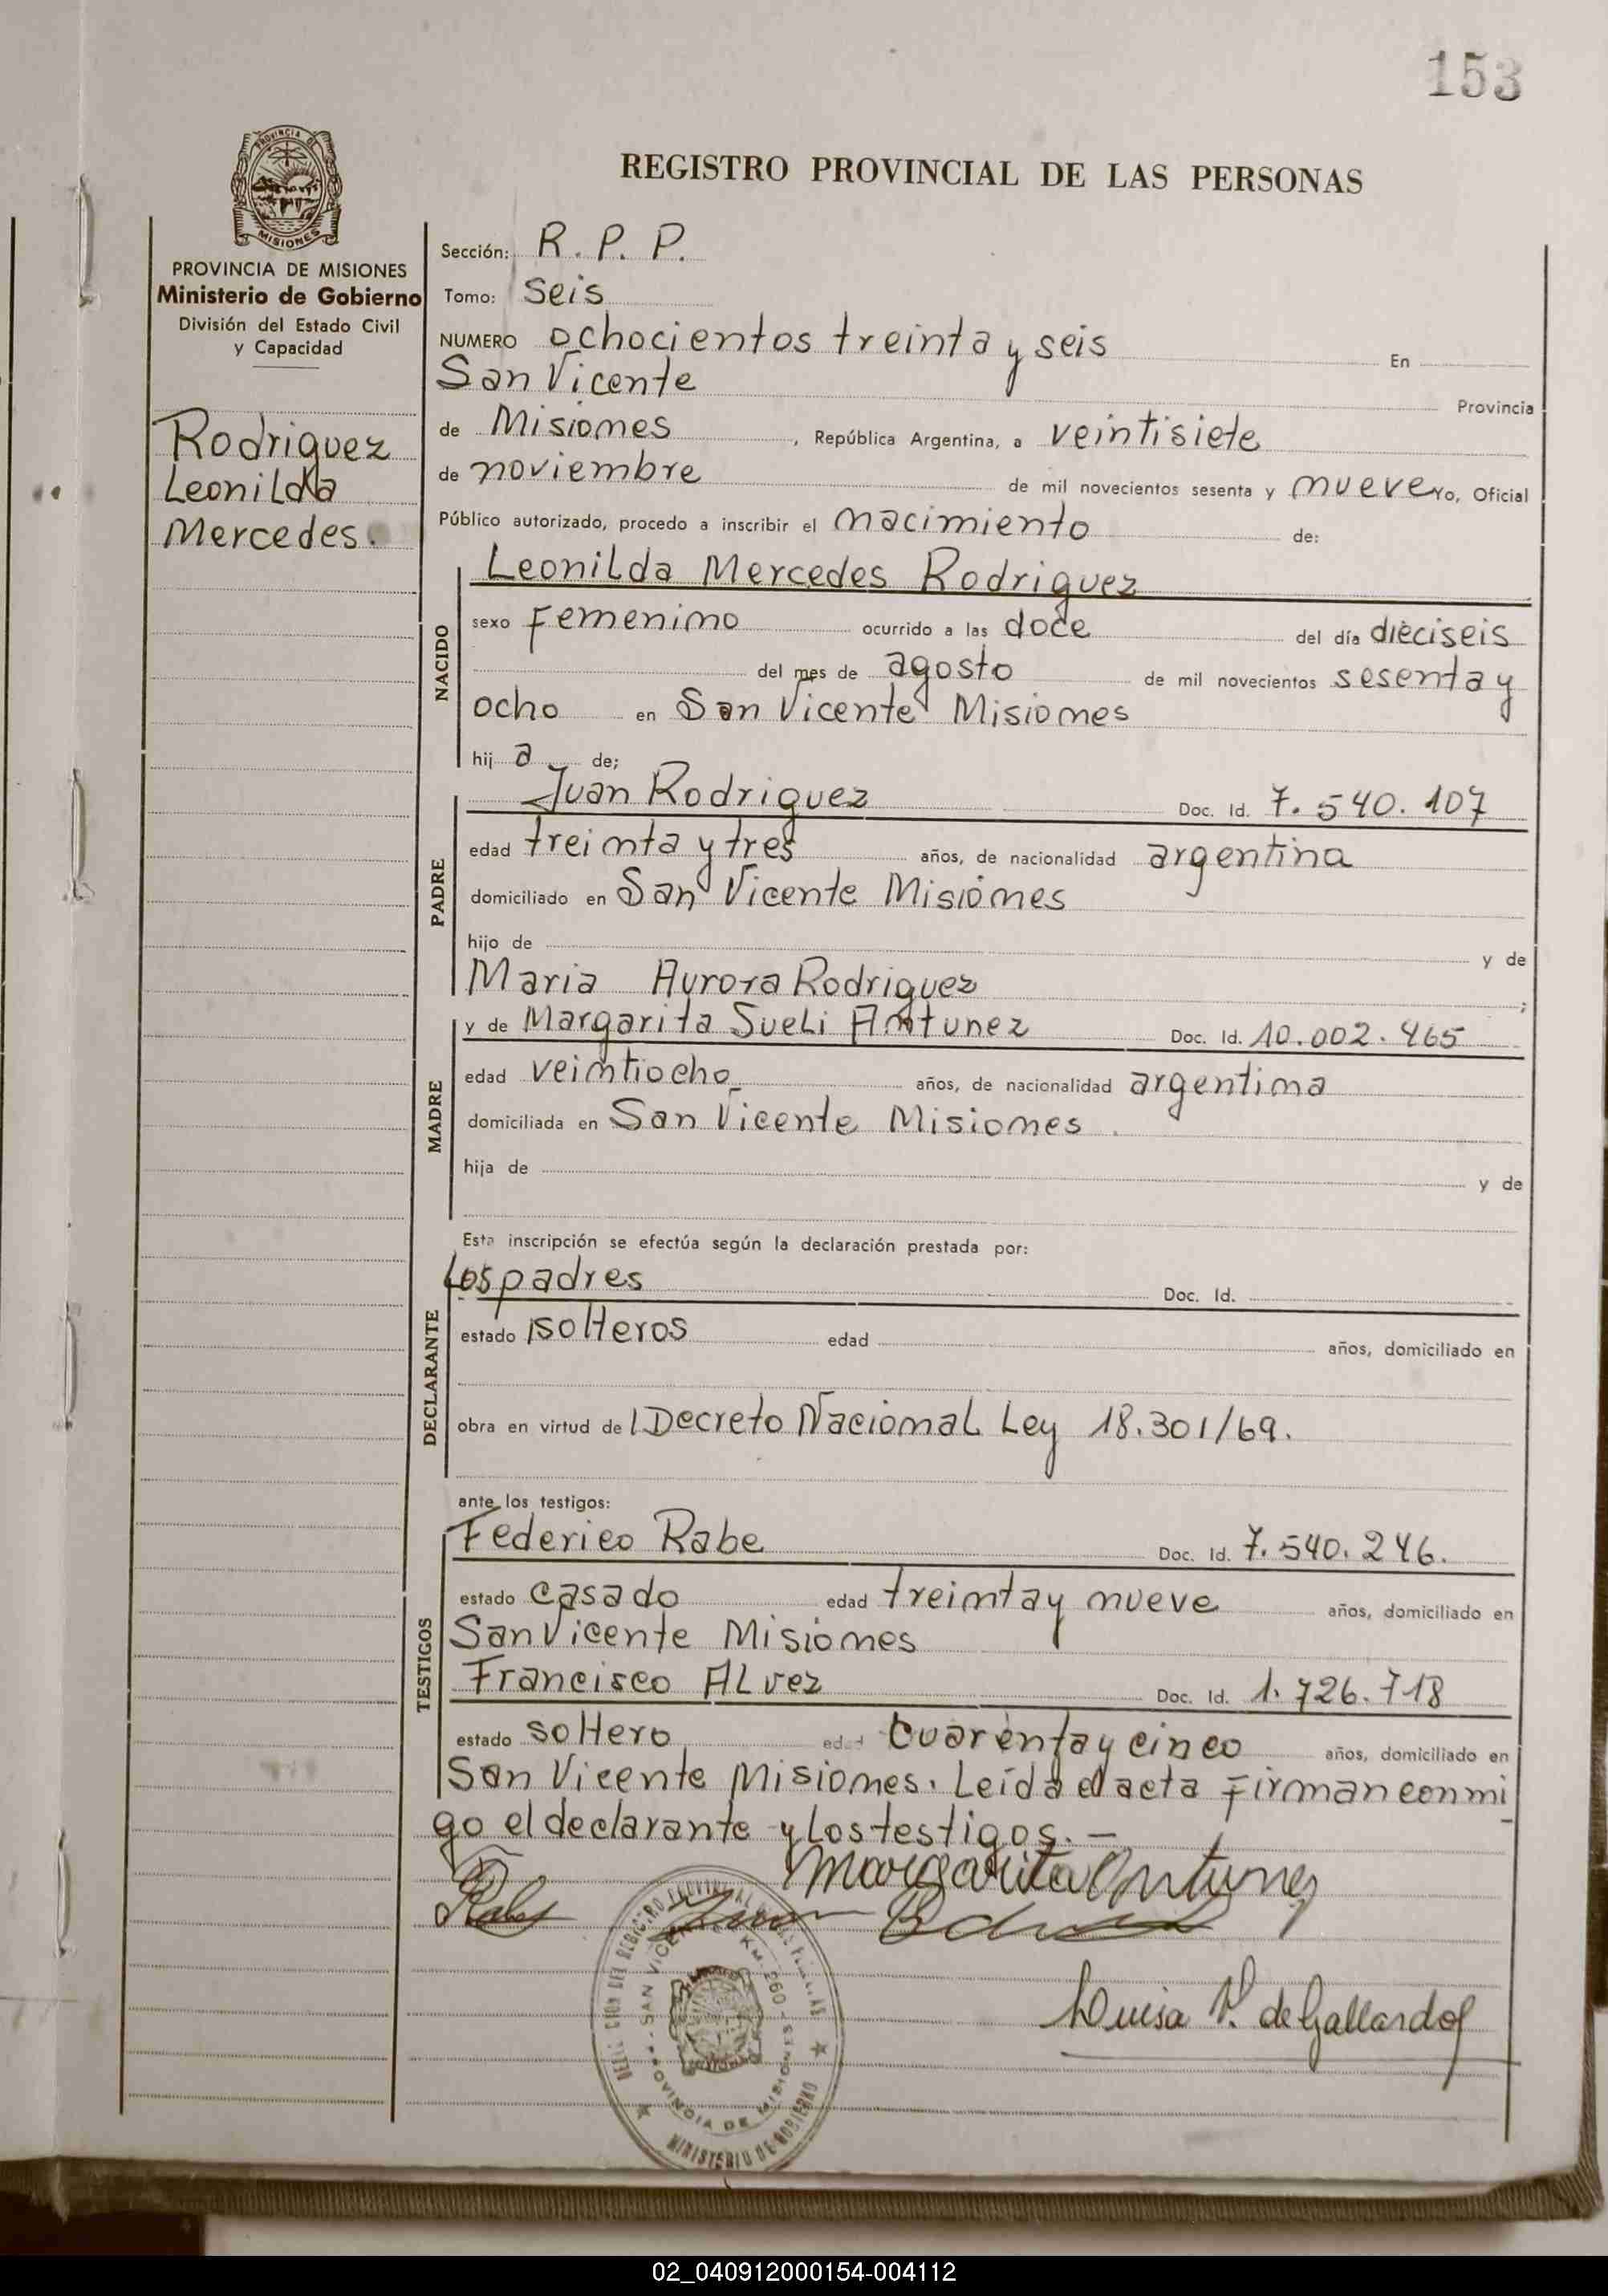 153
REGISTRO PROVINCIAL DE LAS PERSONAS
PROVINCIA DE MISIONES
Ministerio de Gobierno
División del Estado Civil
y Capacidad
Rodriguez
Leonilda
Mercedes.
Sección: R. P. P.
Tomo: Seis
NUMERO ochocientos treinta y seis En
San Vicente Provincia
de Misiones, República Argentina, a veintisiete
de noviembre de mil novecientos sesenta y nueve Yo, Oficial
Público autorizado, procedo a inscribir el nacimiento de:
NACIDO
Leonilda Mercedes Rodriguez
sexo Femenino ocurrido a las doce del día dieciseis
del mes de agosto de mil novecientos sesenta y
ocho en San Vicente Misiones
hij a de;
PADRE
Juan Rodriguez Doc. Id. 7.540.107
edad treinta y tres años, de nacionalidad argentina
domiciliado en San Vicente Misiones
hijo de y de
Maria Aurora Rodriguez ;
MADRE
y de Margarita Sueli Antunez Doc. Id. 10.002.465
edad veintiocho años, de nacionalidad argentina
domiciliada en San Vicente Misiones.
hija de y de
DECLARANTE
Esta inscripción se efectúa según la declaración prestada por:
Los padres Doc. Id.
estado solteros edad años, domiciliado en
obra en virtud de l Decreto Nacional Ley 18.301/69.
TESTIGOS
ante los testigos:
Federico Rabe Doc. Id. 7.540.246.
estado casado edad treinta y nueve años, domiciliado en
San Vicente Misiones
Francisco ALvez Doc. Id. 1.726.718
estado soltero edad cuarenta y cinco años, domiciliado en
San Vicente Misiones. Leída el acta Firman conmi
go el declarante y Los testigos.—
Margarita Antunez
Rabe
Luisa V. de Gallardo
SAN VICENTE KM. 260 - MISIONES
PROVINCIA DE MISIONES
MINISTERIO DE GOBIERNO
02_040912000154-004112